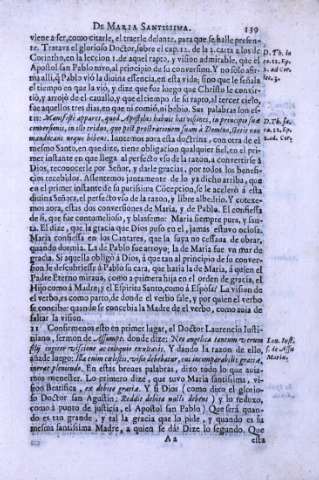 DE MARIA SANTISSIMA. 139
viene a ser, como citarle, el traerle delante, para que se halle presen-
te. Tratava el glorioso Doctor, sobre el cap. 12. de la 2. carta a los de
Corintho, en la leccion 1. de aquel rapto, y vision admirable, que el
Apostol san Pablo tuvo, al principio de su conversion. Y no solo afir-
ma alli, q̃ Pablo viò la divina essencia, en esta vida; sino que le señala
el tiempo en que la viò, y dize que fue luego que Christo le convir-
tiò, y arrojò de el cavallo, y que el tiempo de su rapto, al tercer cielo,
fue aquellos tres dias, en que ni comiò, ni bebiò. Sus palabras son es-
tas: Manifeste apparet, quod Apostolus habuit has visiones, in principio suæ
conversionis, in illo triduo, quo post prostrationem suam à Domino, stetit non
manducans neque bibens. Iuntemos aora esta doctrina, con otra de el
mesmo Santo, en que dize, tiene obligacion qualquier fiel, en el pri-
mer instante en que llega al perfecto vso de la razon, a convertirse à
Dios, reconocerle por Señor, y darle gracias, por todos los benefi-
cios recebidos. Assentemos juntamente de lo ya dicho arriba, que
en el primer instante de su purissima Cõcepcion, se le acelerò à esta
divina Señora, el perfecto vso de la razon, y libre albedrio. Y cotexe-
mos aora, estas dos conversiones de Maria, y de Pablo. El confiessa
de si, que fue contumelioso, y blasfemo: Maria siempre pura, y san-
ta. El dize, que la gracia que Dios puso en el, jamàs estuvo ociosa.
Maria confiessa en los Cantares, que la suya no cessava de obrar,
quando dormia. La de Pablo fue arroyo; la de Maria fue vn mar de
gracia. Si aquella obligò à Dios, à que tan al principio de su conver-
sion se descubriesse à Pablo su cara, que haria la de Maria, à quien el
Padre Eterno mirava, como a primera hija en el orden de gracia, el
Hijo como à Madre, y el Espiritu Santo, como à Esposa? La vision de
el verbo, es como parto, de donde el verbo sale, y por quien el verbo
se concibe: quando se concebia la Madre de el verbo, como avia de
faltar la vision.
21 Confirmemos esto en primer lugar, el Doctor Laurencio Iusti-
niano, sermon de Assumpt. donde dize: Nec angelica tantum verum
añade luego: Illa enim cœlestis, visio debebatur, cui incomparabilis gratia,
inerat plenitudo. En estas breues palabras, dizo todo lo que avia-
mos menester. Lo primero dize, que tuvo Maria santissima, vi-
sion Beatifica, ex debito gratiæ. Y si Dios (como dizo el glorio-
so Doctor san Agustin; Reddit debita nulli debens) y lo reduxo,
como à punto de justicia, el Apostol san Pablo) Que serà quan-
do es tan grande, y tal la gracia que lo pide, y quando es su
mesma santissima Madre, a quien se dà? Dize lo segundo. Que
Aa esta
D. Th. le
ct. 12. Ep.
2. ad Cor.
lec. 1.
D. Th. le
ct. 12. Ep.
2. ad. Cor.
Lau. Iust.
s. de Assu
Mariæ.